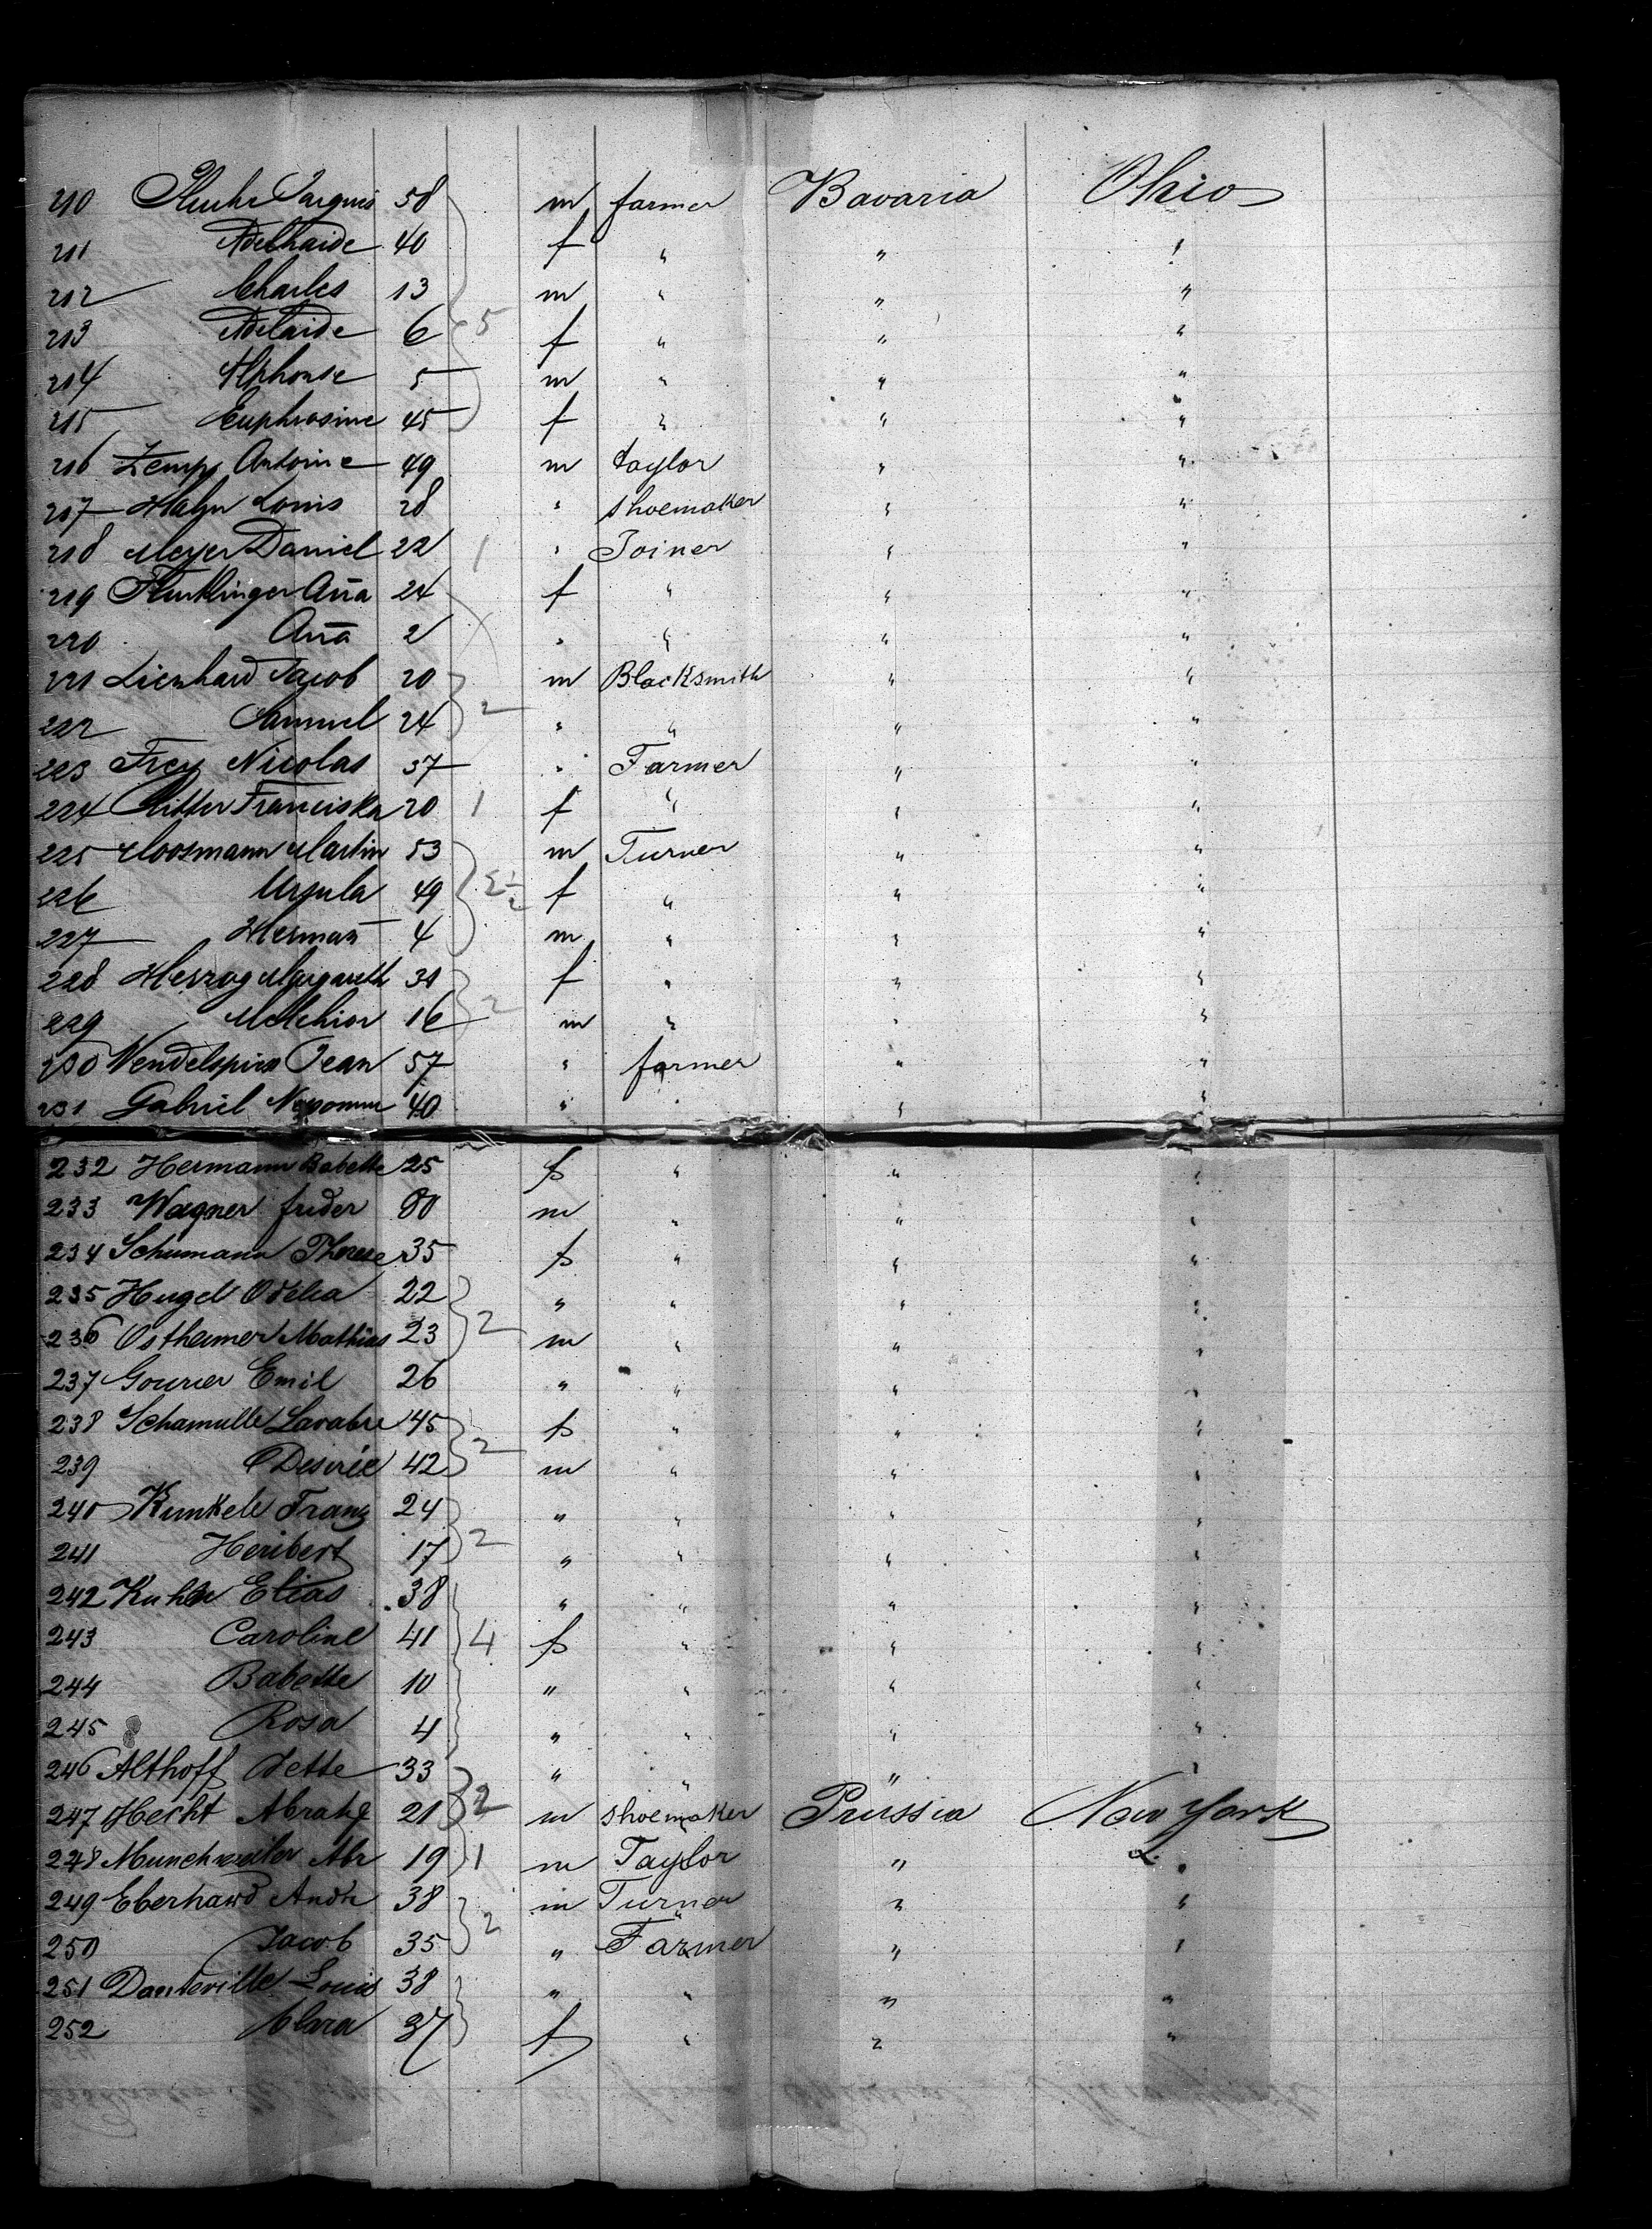 210 Jacques 58 m farmer Bavaria Ohio
211 Adelhaide 40 f " " "
212 Charles 13 m " " "
213 Adelaide 6 5 f " " "
214 Alphonse 5 m " " "
215 Euphrosine 45 f " " "
216 Zemp Antoine 49 m taylor " "
217 Hahn Louis 28 " shoemaker " "
218 Meyer Daniel 22 1 " Joiner " "
219 Flurklinger Aña 24 f " " "
220 Aña 2 " " " "
221 Lienhard Jacob 20 m Blacksmith " "
222 Samuel 24 2 " " " "
223 Frey Nicolas 37 " Farmer " "
224 Ritter Franciska 20 1 f " " "
225 Moosmann Martin 53 m Turner " "
226 Ursula 49 2½ f " " "
227 Herman̄ 4 m " " "
228 Herzog Margareth 31 f " " "
229 Melchior 16 2 m " " "
230 Jean 57 " farmer " "
231 Gabriel 40 " " " "
232 Hermann Babette 25 f " " "
233 Wagner frider 80 m " " "
234 Schumann Therese 35 f " " "
235 Hugel Odelia 22 " " " "
236 Ostheimer Mathias 23 2 m " " "
237 Gourier Emil 26 " " " "
238 Schamulle 45 f " " "
239 Desirée 42 2 m " " "
240 Kunkele Franz 24 " " " "
241 Heribert 17 2 " " " "
242 Kuhn Elias 38 " " " "
243 Caroline 41 4 f " " "
244 Babette 10 " " " "
245 Rosa 4 " " " "
246 Althoff Jette 33 " " " "
247 Hecht 21 2 m shoemaker Prussia New York
248 Munchweiler Abr 19 1 m Taylor " "
249 Eberhard Andr 38 m Turner " "
250 Jacob 35 2 " Farmer " "
251 Danteville Louis 38 " " " "
252 Clara 37 f " " "